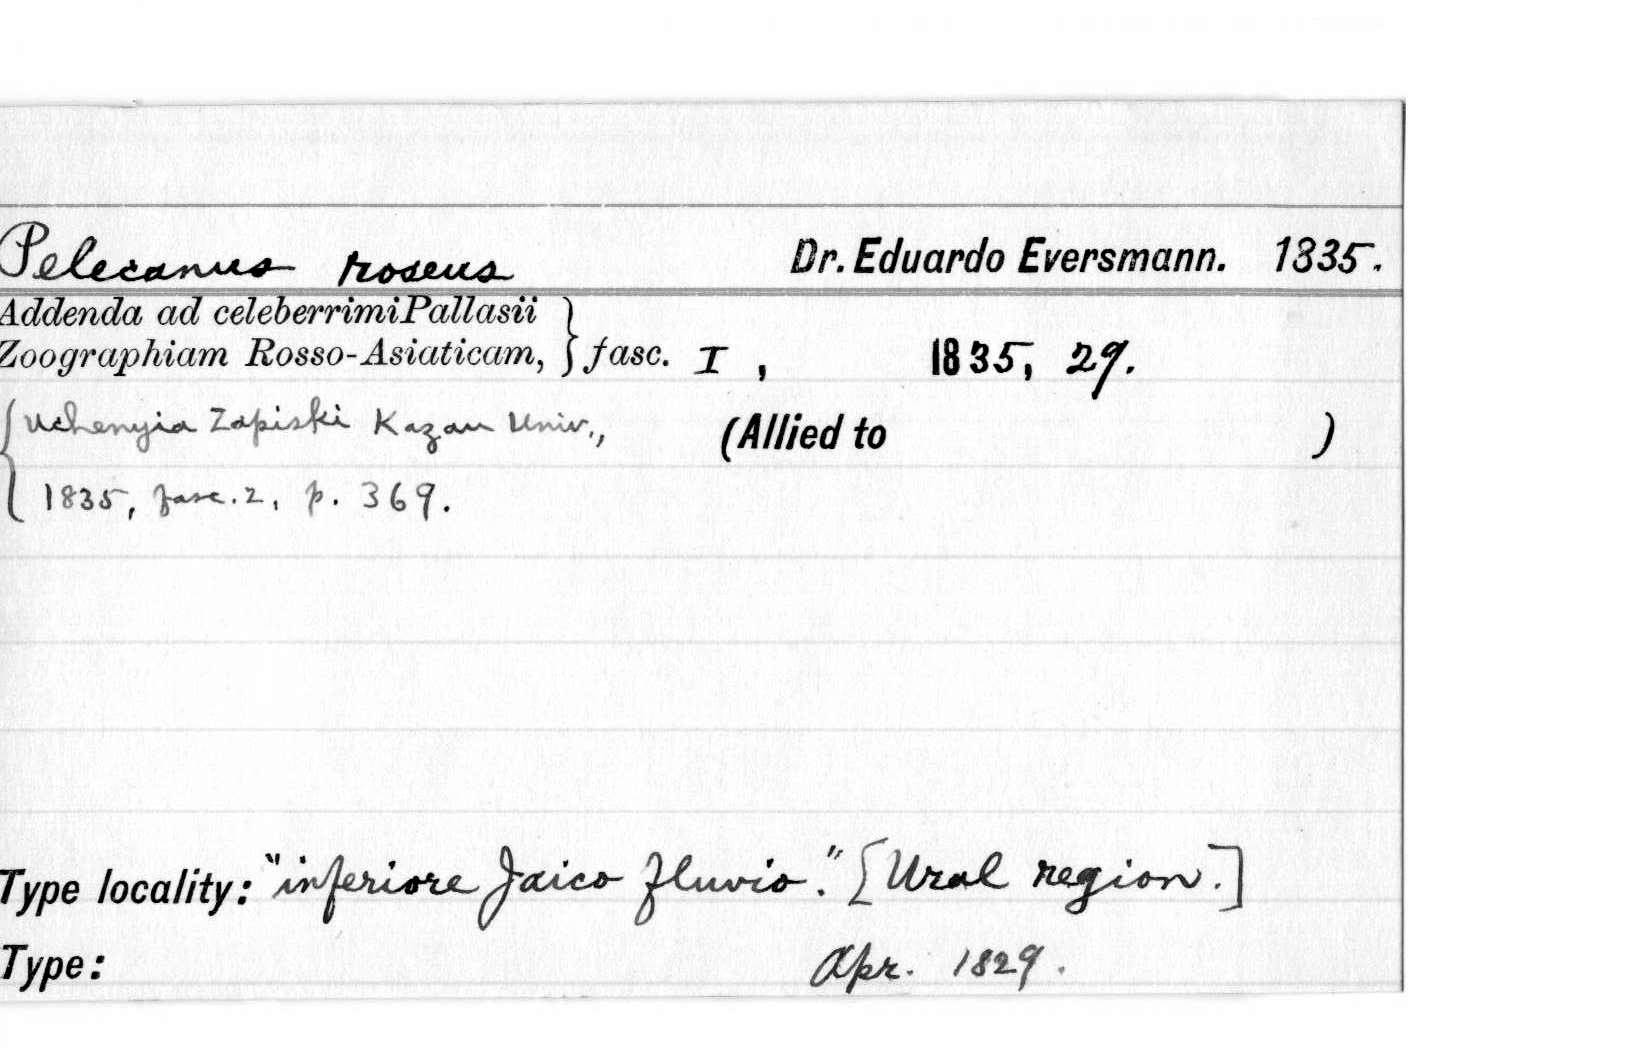 Pelecanus roseus Dr. Eduardo Eversmann. 1835.
Addenda ad celeberrimi Pallasii
Zoographiam Rosso-Asiaticam, } fasc. I, 1835, 29.
{Uchenyia Zapiski Kazan Univ., (Allied to )
1835, fasc. 2, p. 369.
Type locality: "inferiore Jaico fluvio." [Ural region.]
Type: Apr. 1829.